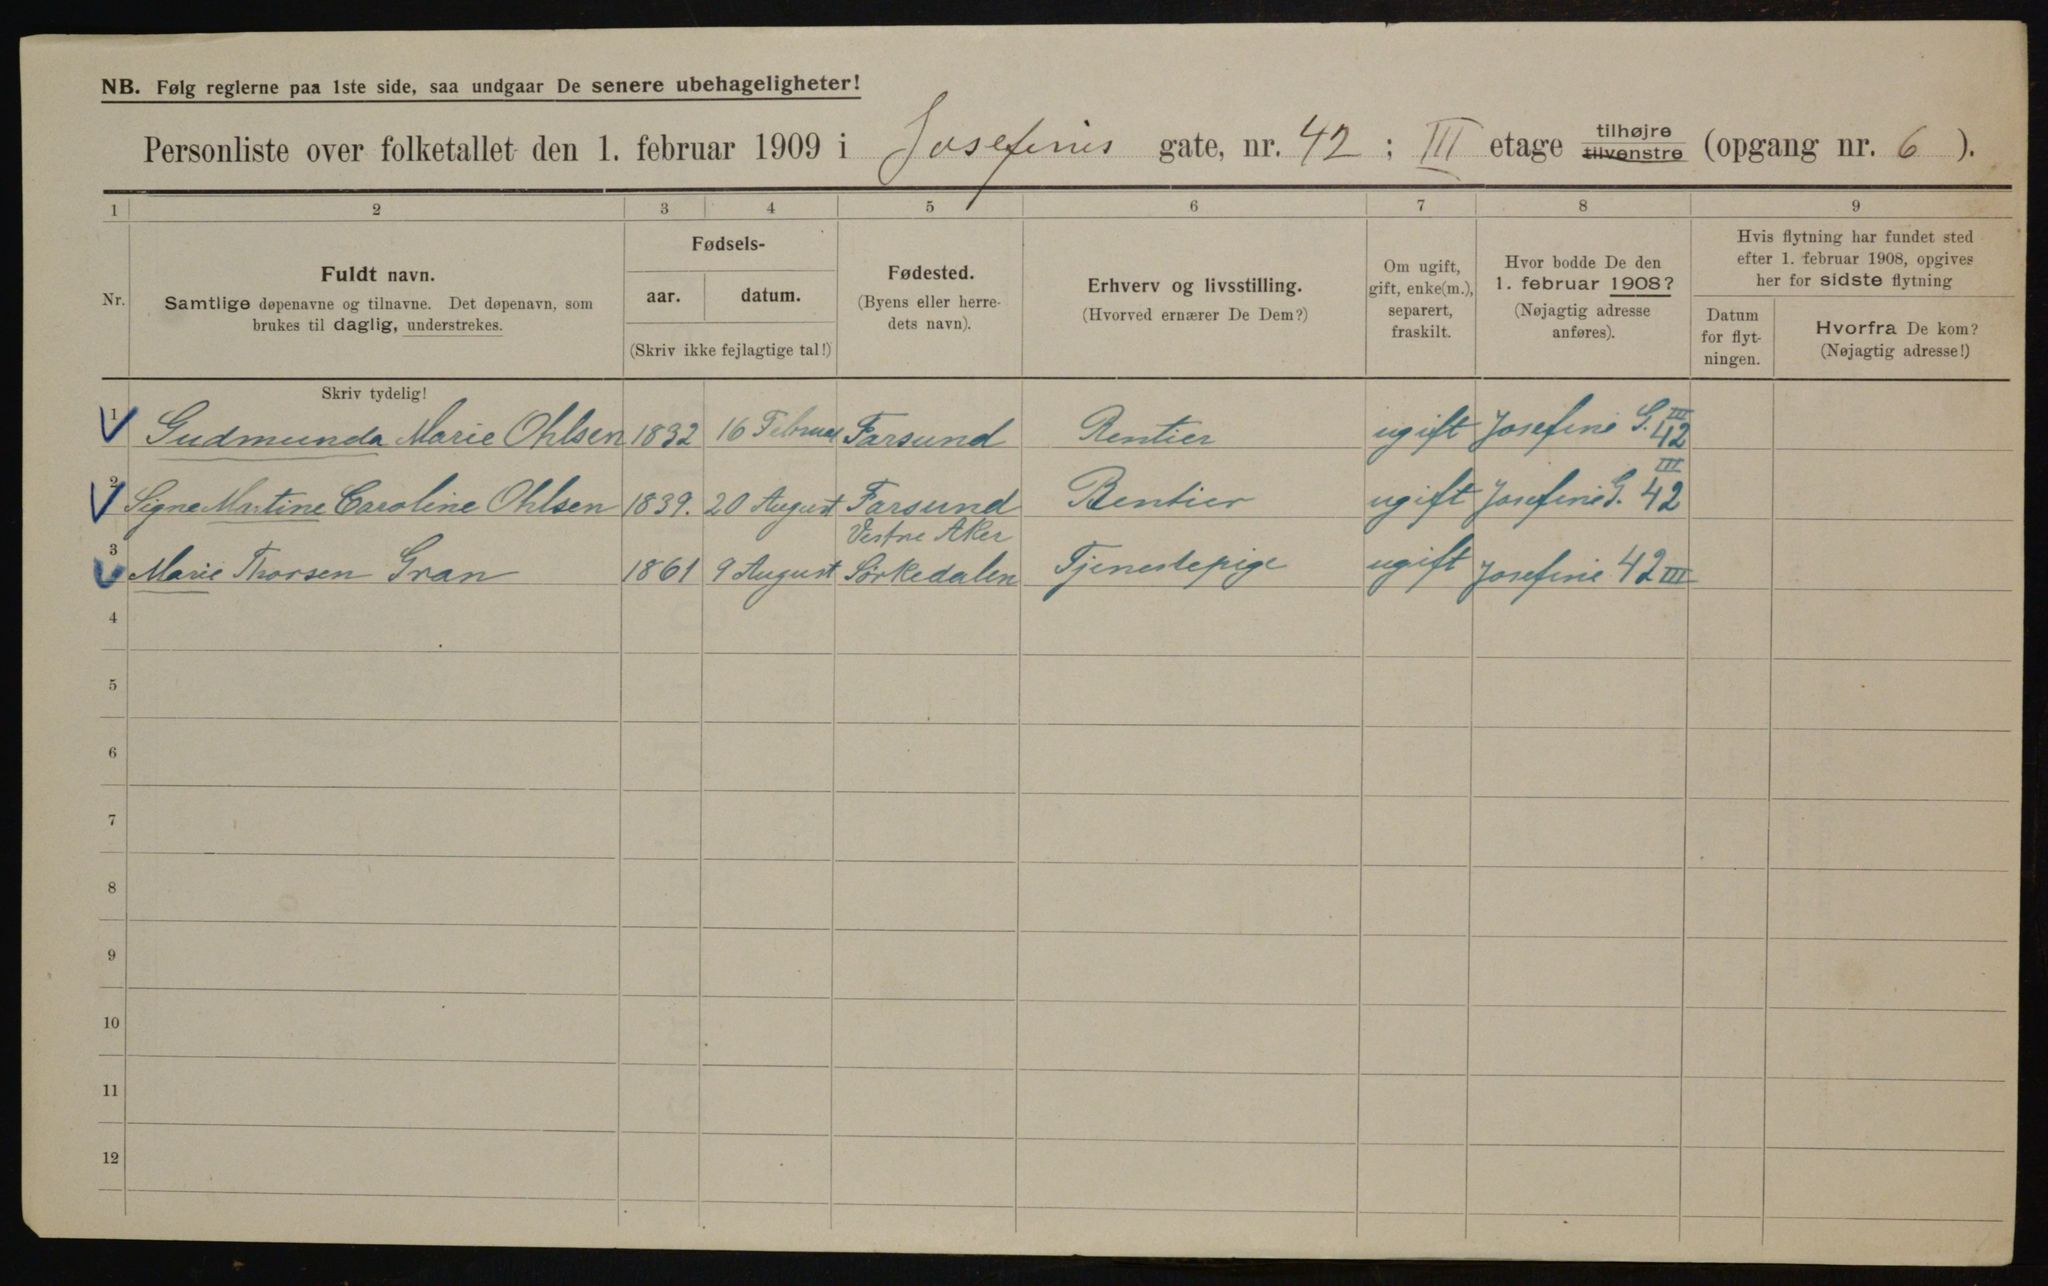 NB. Følg reglerne paa 1ste side, saa undgaar De senere ubehageligheter!
Personliste over folketallet den 1. februar 1909 i Josefines gate, nr. 42 ; III etage tilhøjre tilvenstre (opgang nr. 6 ).
1 2 3 4 5 6 7 8 9
Nr.
Fuldt navn.
Samtlige døpenavne og tilnavne. Det døpenavn, som
brukes til daglig, understrekes.
Fødsels-
aar. datum.
(Skriv ikke fejlagtige tal!)
Fødested.
(Byens eller herre-
dets navn).
Erhverv og livsstilling.
(Hvorved ernærer De Dem?)
Om ugift,
gift, enke(m.),
separert,
fraskilt.
Hvor bodde De den
1. februar 1908?
(Nøjagtig adresse
anføres).
Hvis flytning har fundet sted
efter 1. februar 1908, opgives
her for sidste flytning
Datum
for flyt-
ningen.
Hvorfra De kom?
(Nøjagtig adresse!)
Skriv tydelig!
1 Gudmunda Marie Ohlsen 1832 16 Februar Farsund Rentier ugift Josefine G. 42 III
2 Signe Martine Caroline Ohlsen 1839. 20 August Farsund Rentier ugift Josefine G. 42 III
Vestre Aker
3 Marie Thorsen Gran 1861 9 August Sörkedalen Tjenestepige ugift Josefine 42 III
4
5
6
7
8
9
10
11
12